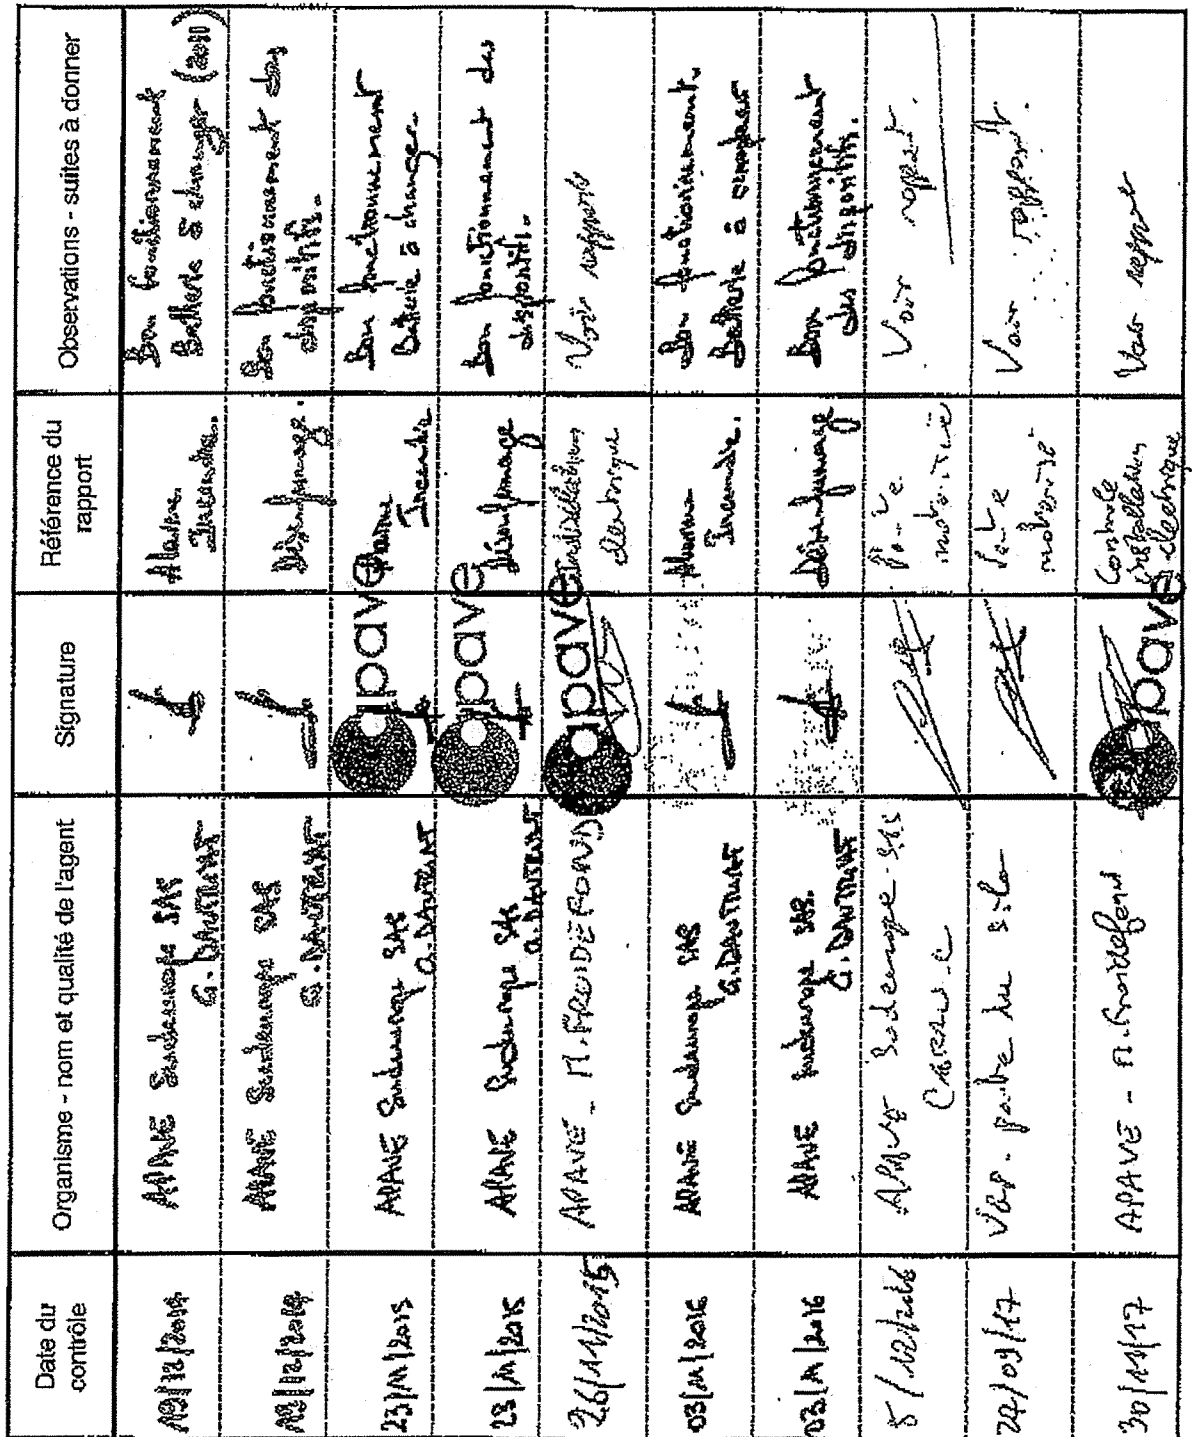 Date du contrôle
Organisme - nom et qualité de l'agent
Signature
Référence du rapport
Observations - suites à donner
19/12/2014
APAVE Sudeurope SAS
G. DAUTRANT
Alarme
Incendie.
Bon fonctionnement
Batterie à changer (2011)
19/12/2014
APAVE Sudeurope SAS
G. DAUTRANT
Désenfumage.
Bon fonctionnement des
dispositifs.
23/11/2015
APAVE Sudeurope SAS
G. DAUTRANT
apave
Alarme
Incendie
Bon fonctionnement
Batterie à changer.
23/11/2015
APAVE Sudeurope SAS
G. DAUTRANT
apave
Désenfumage
Bon fonctionnement des
dispositifs.
26/11/2015
APAVE - M. FROIDEFOND
apave
Installation
électrique
Voir rapport
03/11/2016
APAVE Sudeurope SAS
G. DAUTRANT
Alarme
Incendie.
Bon fonctionnement.
Batterie à remplacer
03/11/2016
APAVE Sudeurope SAS.
G. DAUTRANT
Désenfumage
Bon fonctionnement
des dispositifs.
8/12/2016
APAVE Sudeurope SAS
Porte
Voir rapport.
/09/17
Porte
Voir rapport.
30/11/17
APAVE - M. Froidefond
apave
Contrôle
installation
électrique
Voir rapport